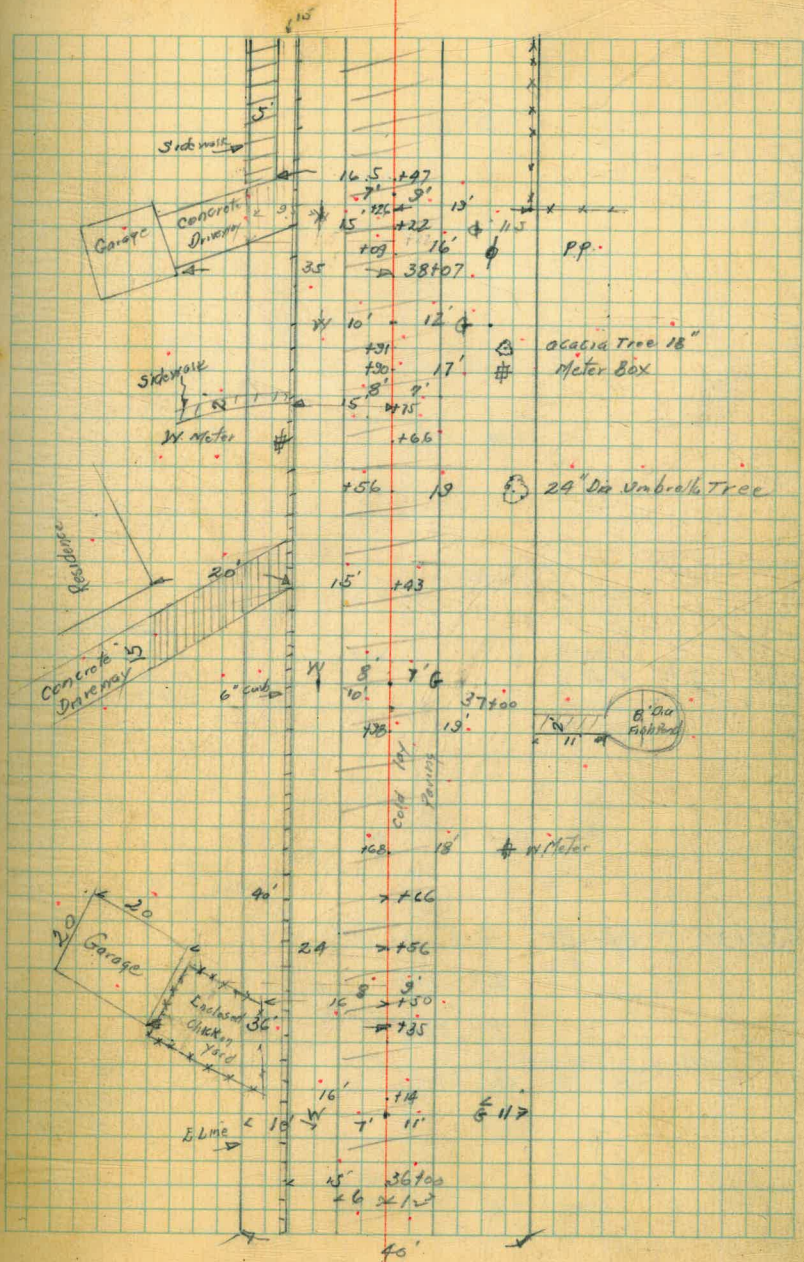 15'
5'
Sidewalk
16.5 +47
7' 9'
+26 19'
Garage
Concrete Driveway
9
15' +22 11.5
+09 16' P.P.
35 38+07
W 10' 12' G
+91 acacia Tree 18"
+90 17' Meter Box
Sidewalk
8' 7'
2 15' +75
W. Meter +66
+56 19 24" Dia Umbrella Tree
Residence
20' 15' +43
Concrete Driveway 15
W 8' 7' G
6" curb 10' 37+00
+98 19' 2 11 8' Dia Fish Pond
Cold lay Paving
+68 18' W Meter
40' +66
20
20
Garage
24 +56
8' 9'
16 +50
Enclosed Chicken Yard
36' +35
16' +14
W 7' 11' G 11.7
E Line
15' 36+00
40'